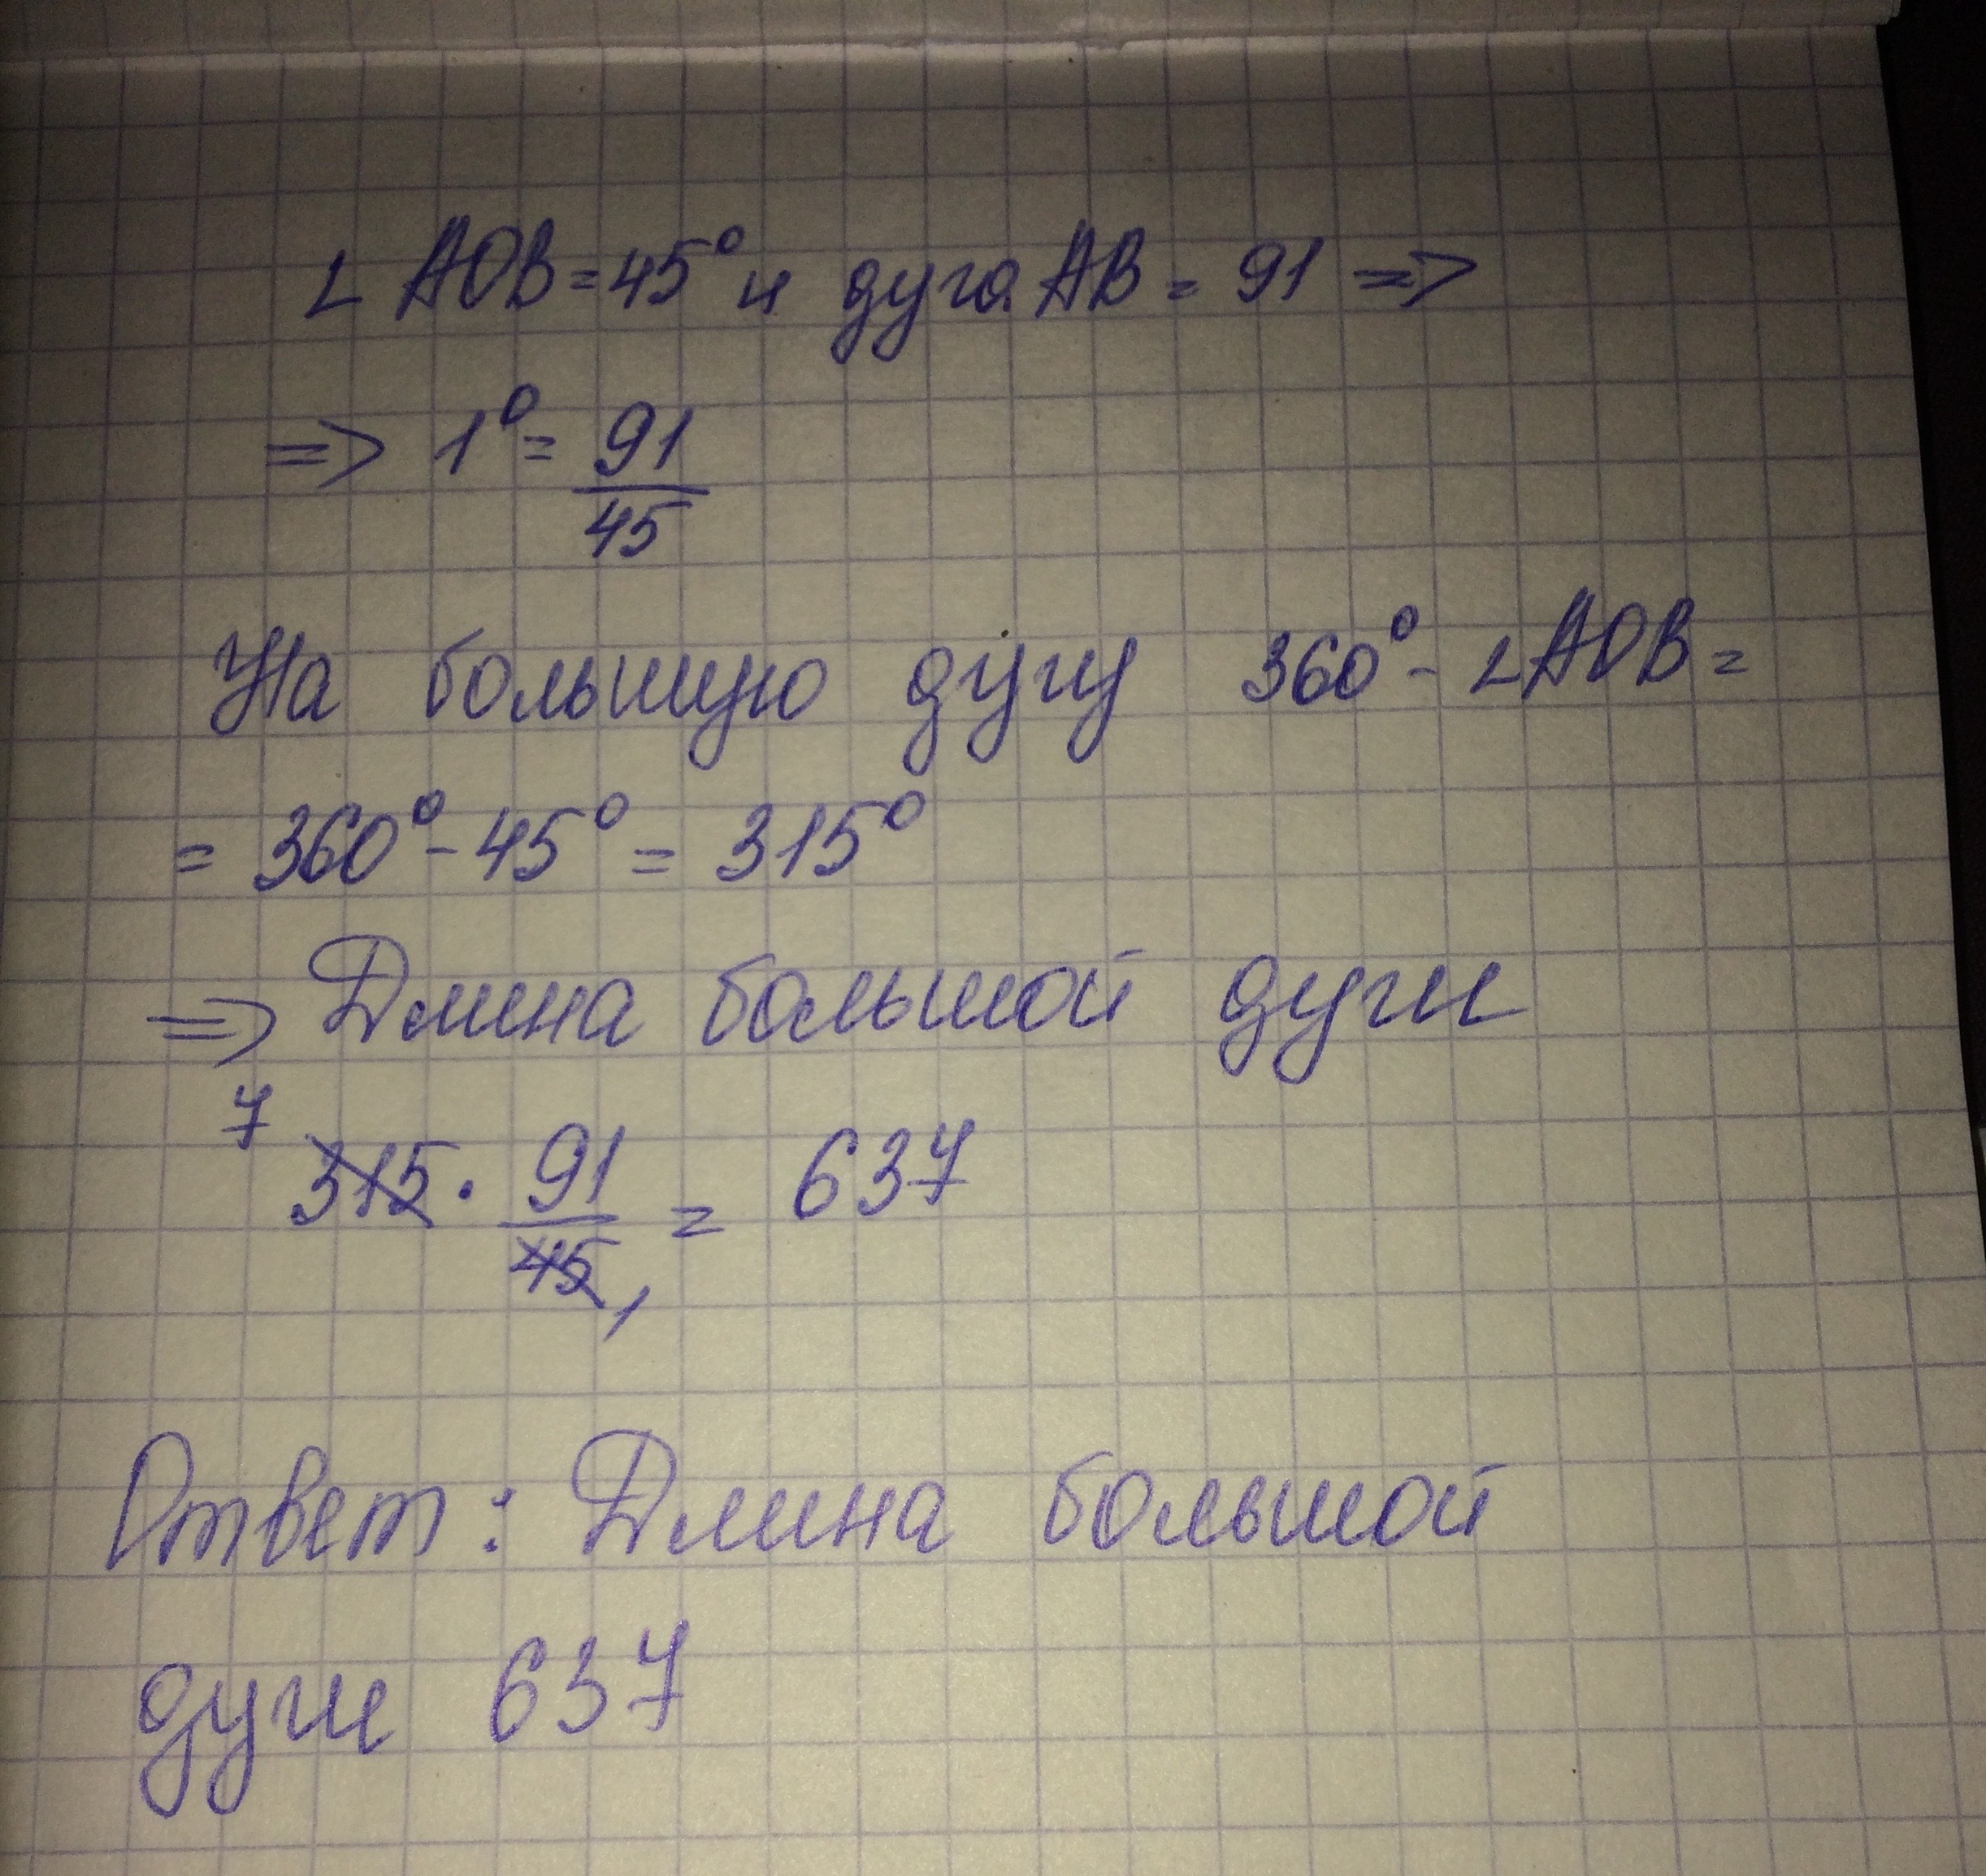 ∠AOB=45° и дуга AB = 91 =>
=> 1° = 91/45
На большую дугу 360° - ∠AOB =
= 360° - 45° = 315°
=> Длина большой дуги
7
315 · 91/45 = 637
1
Ответ: Длина большой
дуги 637